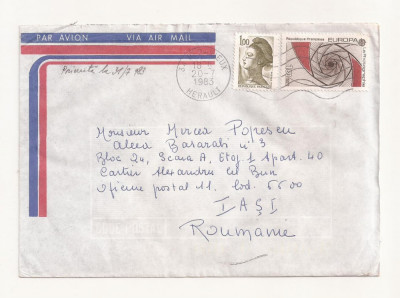 PAR AVION VIA AIR MAIL
Primită la 31/7 983
18 H
20-7
1983
HERAULT
1,00
République Française EUROPA
Monsieur Mircea Popescu
Aleea Basarabi n° 3
Bloc 24, Scara A, Etaj 1 Apart. 40
Cartier Alexandru cel Bun
Oficiul postal 11. Cod. 6600
IAŞI
Roumanie